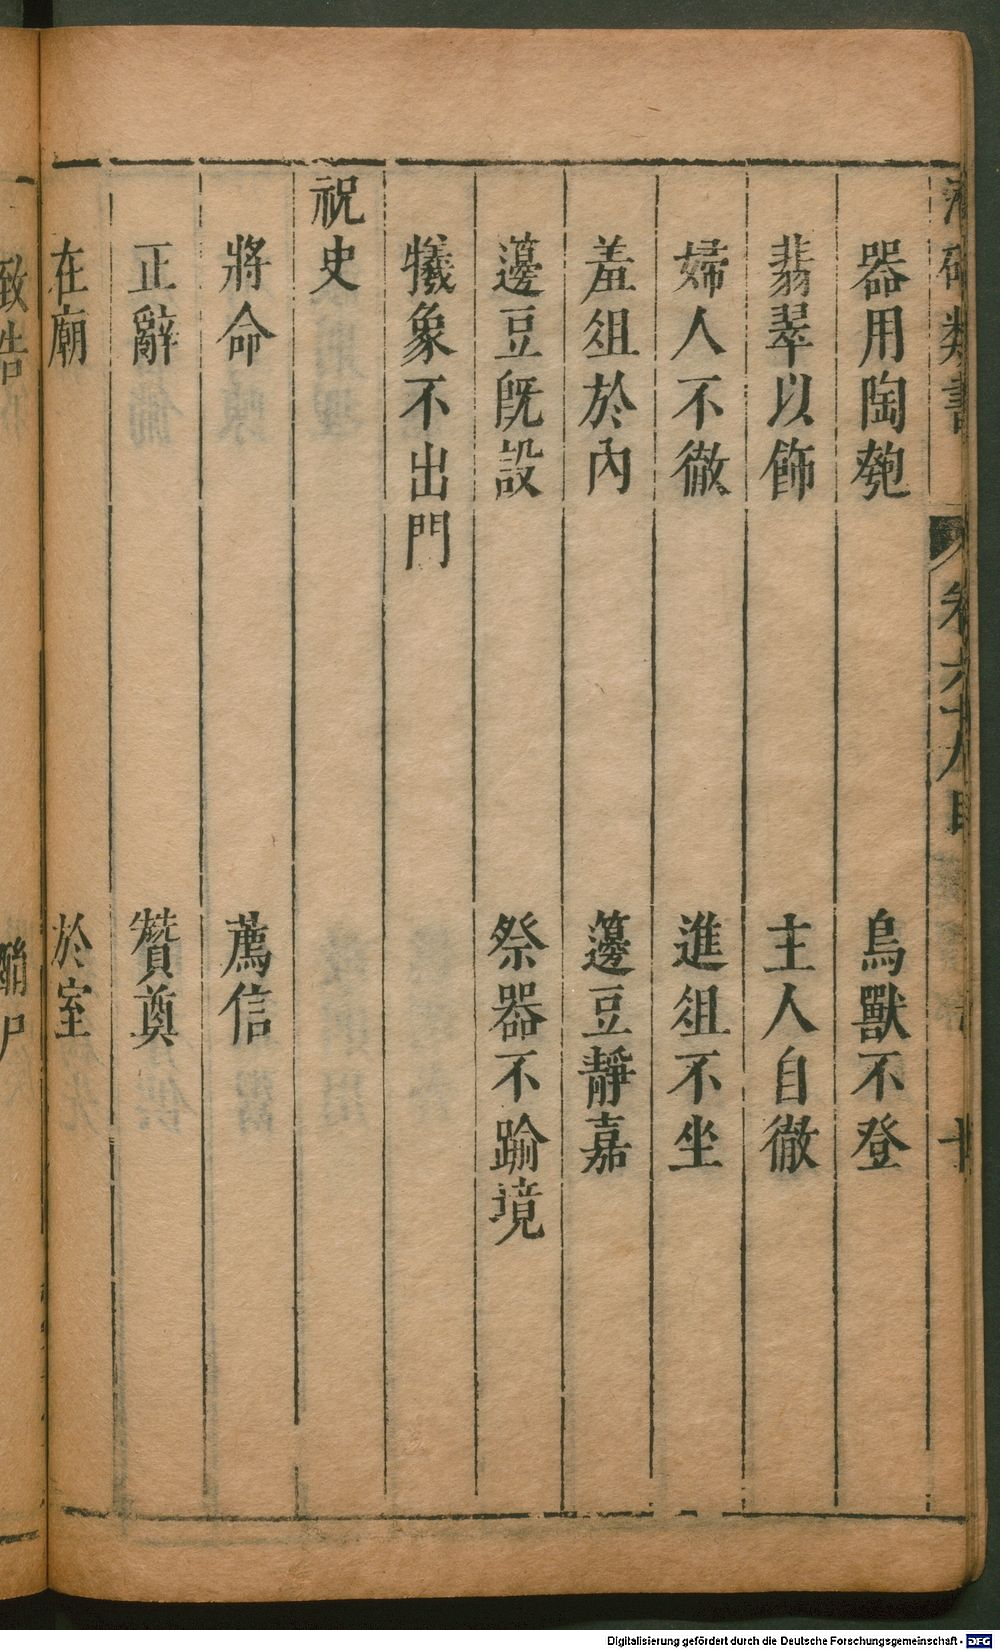 類書 卷六十八目 十
器用陶匏 鳥獸不登
翡翠以飾 主人自徹
婦人不徹 進俎不坐
羞俎於內 籩豆靜嘉
籩豆既設 祭器不踰境
犧象不出門
祝史
將命 薦信
正辭 贊奠
在廟 於室
致告 酳尸
Digitalisierung gefördert durch die Deutsche Forschungsgemeinschaft - DFG